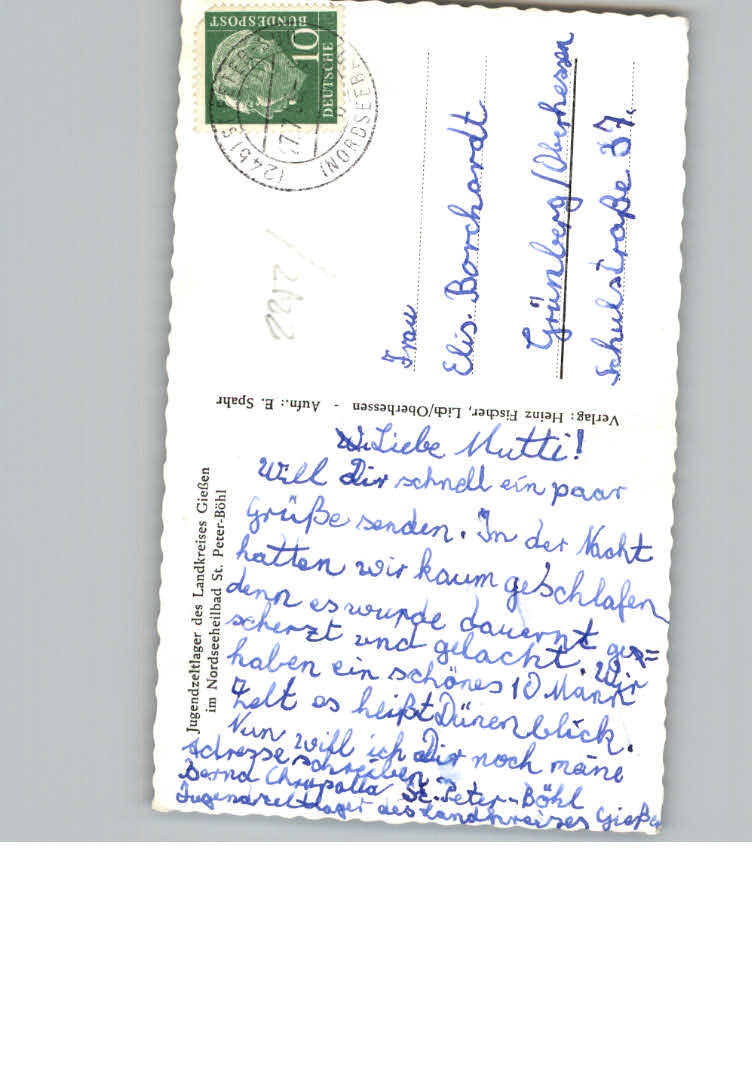 Jugendzeltlager des Landkreises Gießen
im Nordseeheilbad St. Peter-Böhl
Liebe Mutti!
Will Dir schnell ein paar
Grüße senden. In der Nacht
hatten wir kaum geschlafen
denn es wurde dauernt ge=
scherzt und gelacht. Wir
haben ein schönes 10 Mann
Zelt es heißt Dünenblick.
Nun will ich Dir noch meine
Adresse schreiben
Bernd St. Peter-Böhl
Jugendzeltlager des Landkreises Gießen
Verlag: Heinz Fischer, Lich/Oberhessen - Aufn.: E. Spahr
DEUTSCHE
BUNDESPOST
10
(24b) S
(NORDSEEB
2212
Frau
Elis. Borchardt
Grünberg/Oberhessen
Schulstraße 37.